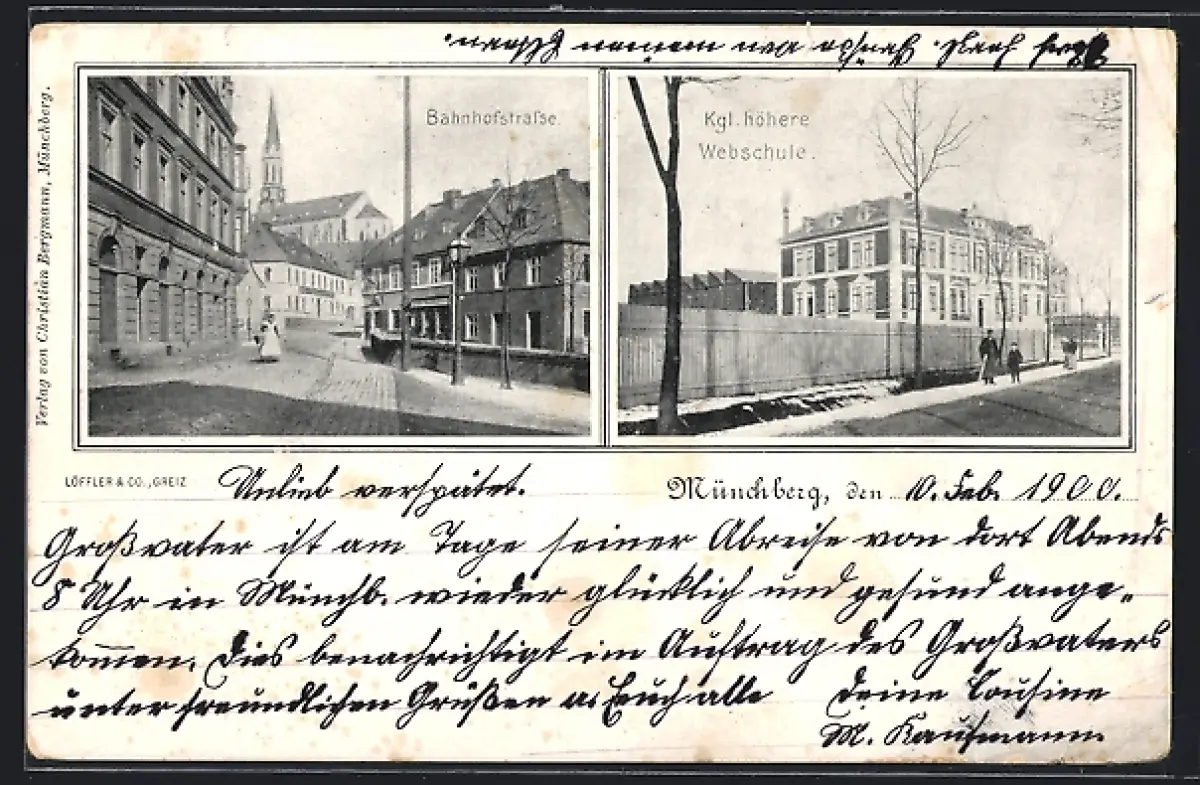 Herzl. Grüße von meinen Eltern.
Bahnhofstraße.
Kgl. höhere
Webschule.
Verlag von Christian Bergmann, Münchberg.
LÖFFLER & CO., GREIZ
Unlieb verspätet.
Münchberg, den 10. Feb. 1900.
Großvater ist am Tage seiner Abreise von dort Abends
8 Uhr in Münchb. wieder glücklich und gesund ange-
kommen. Dies benachrichtigt im Auftrag des Großvaters
unter freundlichen Grüßen a. Euch alle Deine Cousine
M. Kaufmann.